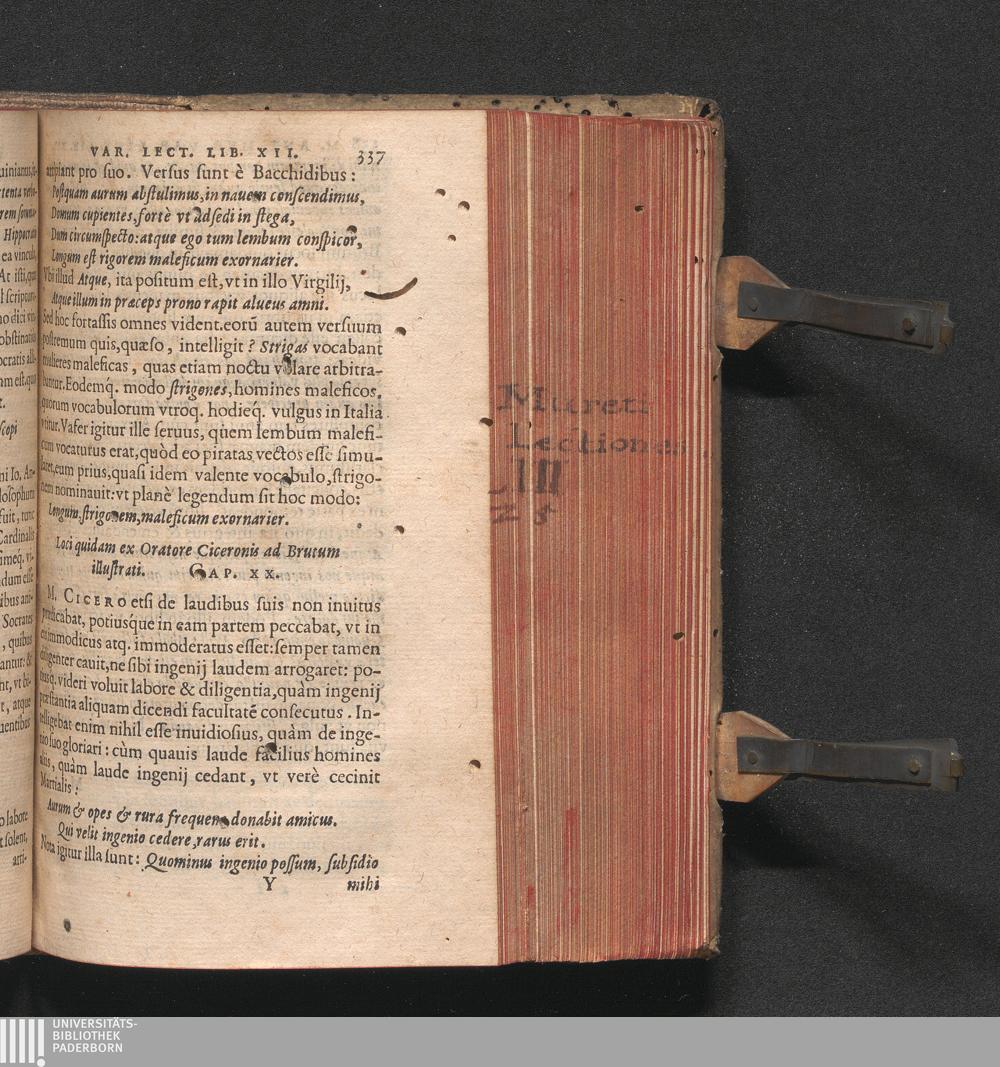 VAR. LECT. LIB. XII. 337
accipiant pro suo. Versus sunt è Bacchidibus:
Postquam aurum abstulimus, in nauem conscendimus,
Domum cupientes, fortè vt adsedi in stega,
Dum circumspecto: atque ego tum lembum conspicor,
Longum est rigorem maleficum exornarier.
Vbi illud Atque, ita positum est, vt in illo Virgilij,
Atque illum in præceps prono rapit alueus amni.
Sed hoc fortassis omnes vident. eorū autem versuum
postremum quis, quæso, intelligit? Strigas vocabant
mulieres maleficas, quas etiam noctu volare arbitra-
bantur. Eodemq. modo strigones, homines maleficos.
quorum vocabulorum vtroq. hodieq́. vulgus in Italia
vtitur. Vafer igitur ille seruus, quem lembum malefi-
cum vocaturus erat, quòd eo piratas vectos esse simu-
laret, eum prius, quasi idem valente vocabulo, strigo-
nem nominauit: vt planè legendum sit hoc modo:
Longum, strigonem, maleficum exornarier.
Loci quidam ex Oratore Ciceronis ad Brutum
illustrati. CAP. XX.
M. CICERO etsi de laudibus suis non inuitus
prædicabat, potiusque in eam partem peccabat, vt in
ea immodicus atq. immoderatus esset: semper tamen
diligenter cauit, ne sibi ingenij laudem arrogaret: po-
tiusq́. videri voluit labore & diligentia, quàm ingenij
præstantia aliquam dicendi facultatē consecutus. In-
telligebat enim nihil esse inuidiosius, quàm de inge-
nio suo gloriari: cùm quauis laude facilius homines
aliis, quàm laude ingenij cedant, vt verè cecinit
Martialis:
Aurum & opes & rura frequens donabit amicus.
Qui velit ingenio cedere, rarus erit.
Nota igitur illa sunt: Quominus ingenio possum, subsidio
Y mihi
Mureti
Lectiones
LII
25
UNIVERSITÄTS-
BIBLIOTHEK
PADERBORN